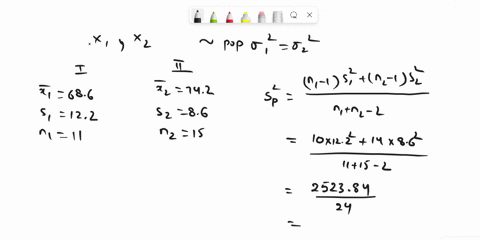 .x₁, x₂ ~ pop σ₁² = σ₂²
I II
x̄₁ = 68.6 x̄₂ = 74.2
s₁ = 12.2 s₂ = 8.6
n₁ = 11 n₂ = 15
sₚ² = (n₁-1) s₁² + (n₂-1) s₂²
n₁+n₂-2
= 10×12.2² + 14×8.6²
11+15-2
= 2523.84
24
=